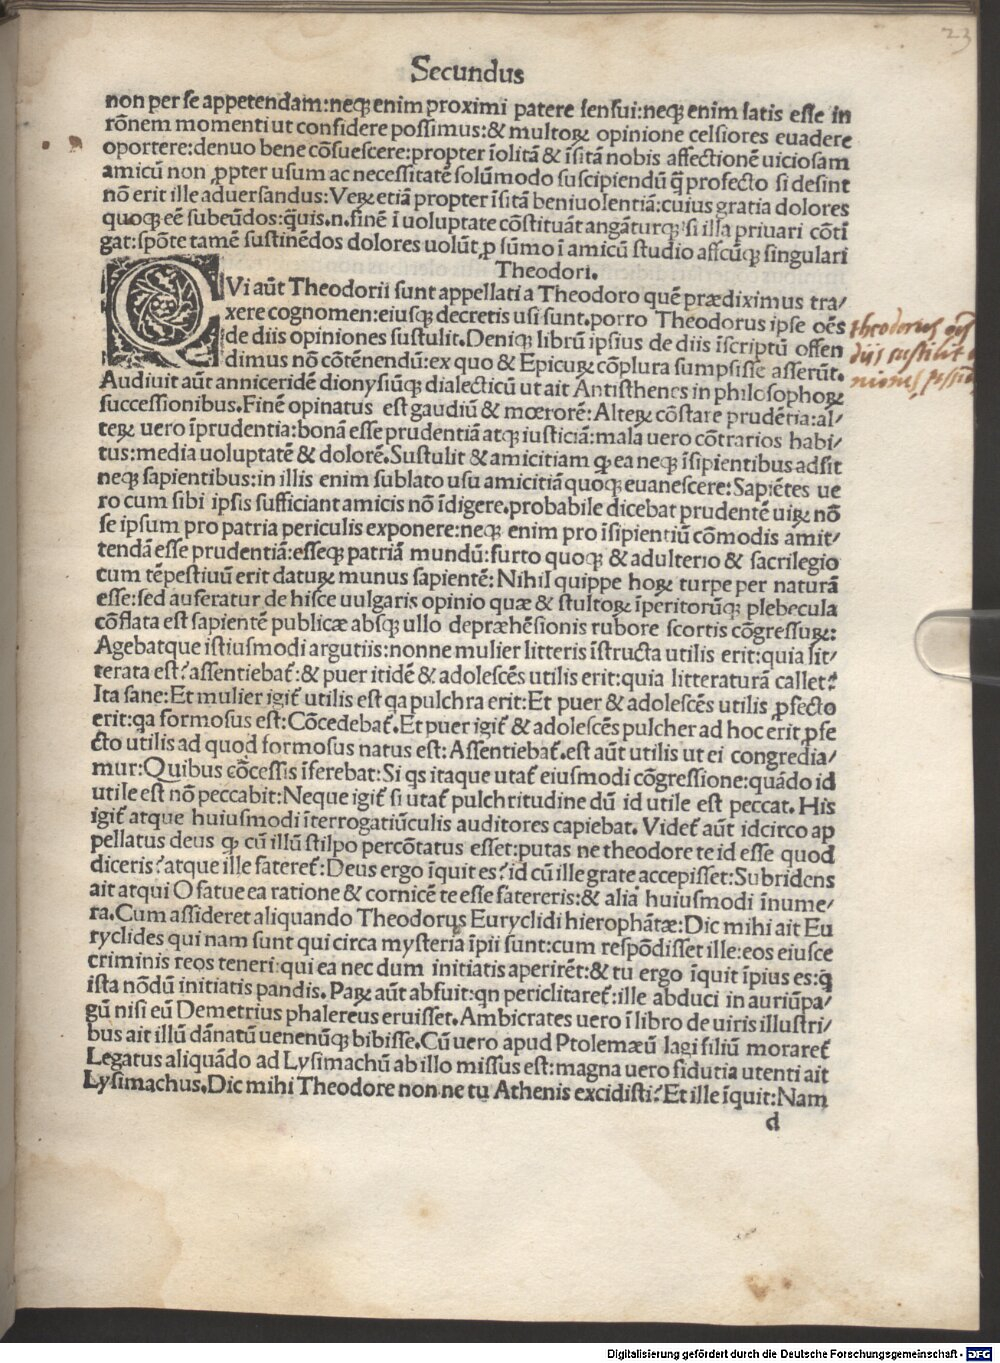 23
Secundus
non per se appetendam:neqꝫ enim proximi patere sensui:neqꝫ enim satis esse in
rōnem momenti ut confidere possimus:& multoꝝ opinione celsiores euadere
oportere:denuo bene cōsuescere:propter īolitā & īsitā nobis affectionē uiciosam
amicū non ꝓpter usum ac necessitatē solūmodo suscipiendū q̄ profecto si desint
nō erit ille aduersandus:Veꝝ etiā propter īsitā beniuolentiā:cuius gratia dolores
quoqꝫ eē subeūdos:q̄uis.n.finē ī uoluptate cōstituāt angāturqꝫ si illa priuari cōtī
gat:spōte tamē sustinēdos dolores uolūt ꝓ sūmo ī amicū studio affcūqꝫ singulari
Theodori.
QVi aūt Theodorii sunt appellati a Theodoro quē prædiximus tra/
xere cognomen:eiusqꝫ decretis usi sunt.porro Theodorus ipse oēs
de diis opiniones sustulit.Deniqꝫ librū ipsius de diis īscriptū offen
dimus nō cōtēnendū:ex quo & Epicuꝝ cōplura sumpsisse asserūt.
theodorus oēs
diis sustilit
Audiuit aūt anniceridē dionysiūqꝫ dialecticū ut ait Antisthenes in philosophoꝝ
successionibus.Finē opinatus est gaudiū & mœrorē:Alteꝝ cōstare prudētia:al/
teꝝ uero īprudentia:bonā esse prudentiā atqꝫ iusticiā:mala uero cōtrarios habi/
tus:media uoluptatē & dolorē.Sustulit & amicitiam ꝙ ea neqꝫ īsipientibus adsit
neqꝫ sapientibus:in illis enim sublato usu amicitiā quoqꝫ euanescere:Sapiētes ue
ro cum sibi ipsis sufficiant amicis nō īdigere.probabile dicebat prudentē uiꝝ nō
se ipsum pro patria periculis exponere:neqꝫ enim pro īsipientiū cōmodis amit/
tendā esse prudentiā:esseqꝫ patriā mundū:furto quoqꝫ & adulterio & sacrilegio
cum tēpestiuū erit datuꝝ munus sapientē:Nihil quippe hoꝝ turpe per naturā
esse:sed auferatur de hisce uulgaris opinio quæ & stultoꝝ īperitorūqꝫ plebecula
cōflata est sapientē publicæ absqꝫ ullo depræhēsionis rubore scortis cōgressuꝝ:
Agebatque istiusmodi argutiis:nonne mulier litteris īstructa utilis erit:quia lit/
terata est?assentiebať:& puer itidē & adolescēs utilis erit:quia litteraturā callet?
Ita sane:Et mulier igiť utilis est qa pulchra erit:Et puer & adolescēs utilis ꝓfecto
erit:qa formosus est:Cōcedebať.Et puer igiť & adolescēs pulcher ad hoc erit ꝓfe
cto utilis ad quod formosus natus est:Assentiebať.est aūt utilis ut ei congredia/
mur:Quibus cōcessis īferebat:Si qs itaque utať eiusmodi cōgressione:quādo id
utile est nō peccabit:Neque igiť si utať pulchritudine dū id utile est peccat. His
igiť atque huiusmodi īterrogatiūculis auditores capiebat. Videť aūt idcirco ap
pellatus deus ꝙ cū illū stilpo percōtatus esset:putas ne theodore te id esse quod
diceris?atque ille fatereť:Deus ergo īquit es?id cū ille grate accepisset:Subridens
ait atqui O fatue ea ratione & cornicē te esse fatereris:& alia huiusmodi īnume/
ra.Cum assideret aliquando Theodorus Euryclidi hierophātæ:Dic mihi ait Eu
ryclides qui nam sunt qui circa mysteria īpii sunt:cum respōdisset ille:eos eiusce
criminis reos teneri:qui ea nec dum initiatis aperirēt:& tu ergo īquit īpius es:q̄
ista nōdū initiatis pandis.Paꝝ aūt abfuit:qn periclitareť:ille abduci in auriūpa/
gū nisi eū Demetrius phalereus eruisset.Ambicrates uero ī libro de uiris illustri/
bus ait illū dānatū uenenūqꝫ bibisse.Cū uero apud Ptolemæū lagi filiū moraret̃
Legatus aliquādo ad Lysimachū ab illo missus est:magna uero fidutia utenti ait
Lysimachus.Dic mihi Theodore non ne tu Athenis excidisti?Et ille īquit:Nam
d
Digitalisierung gefördert durch die Deutsche Forschungsgemeinschaft - DFG